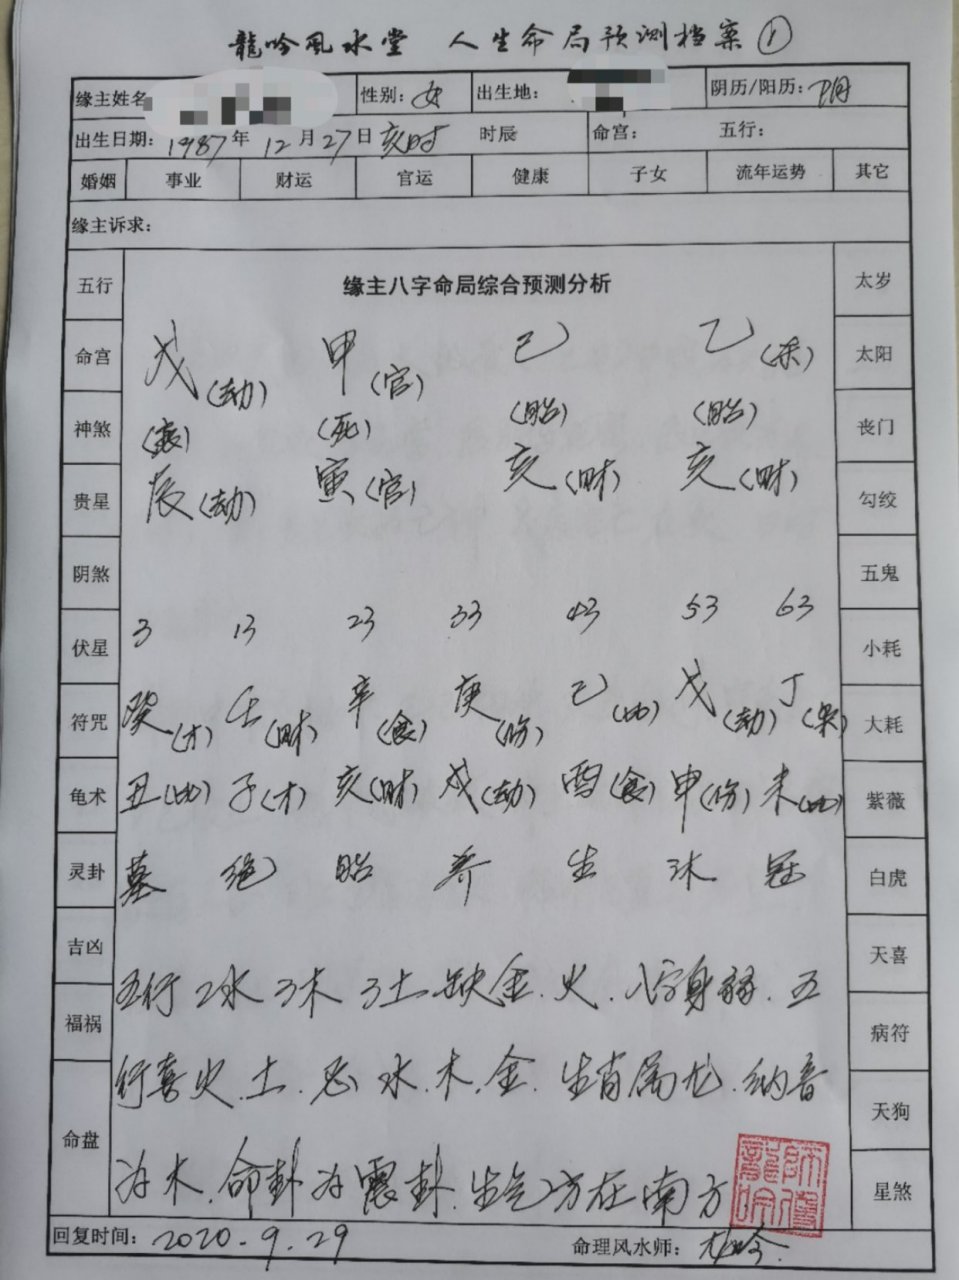 龍吟風水堂 人生命局预测档案①
缘主姓名 性别：女 出生地： 阴历/阳历：阴
出生日期：1987年12月27日亥时 时辰 命宫： 五行：
婚姻 事业 财运 官运 健康 子女 流年运势 其它
缘主诉求：
五行 缘主八字命局综合预测分析 太岁
命宫 戊(劫) 甲(官) 己 乙(杀) 太阳
神煞 (衰) (死) (胎) (胎) 丧门
贵星 辰(劫) 寅(官) 亥(财) 亥(财) 勾绞
阴煞 五鬼
伏星 3 13 23 33 43 53 63 小耗
符咒 癸(才) 壬(财) 辛(食) 庚(伤) 己(比) 戊(劫) 丁(枭) 大耗
龟术 丑(比) 子(才) 亥(财) 戌(劫) 酉(食) 申(伤) 未(比) 紫薇
灵卦 墓 绝 胎 养 生 沐 冠 白虎
吉凶 天喜
五行2水3木3土缺金.火.八字身弱.五
福祸 病符
行喜火.土.忌水.木.金.生肖属龙.纳音
天狗
命盘
为木.命卦为震卦.生气方在南方
星煞
回复时间：2020.9.29 命理风水师：龙吟